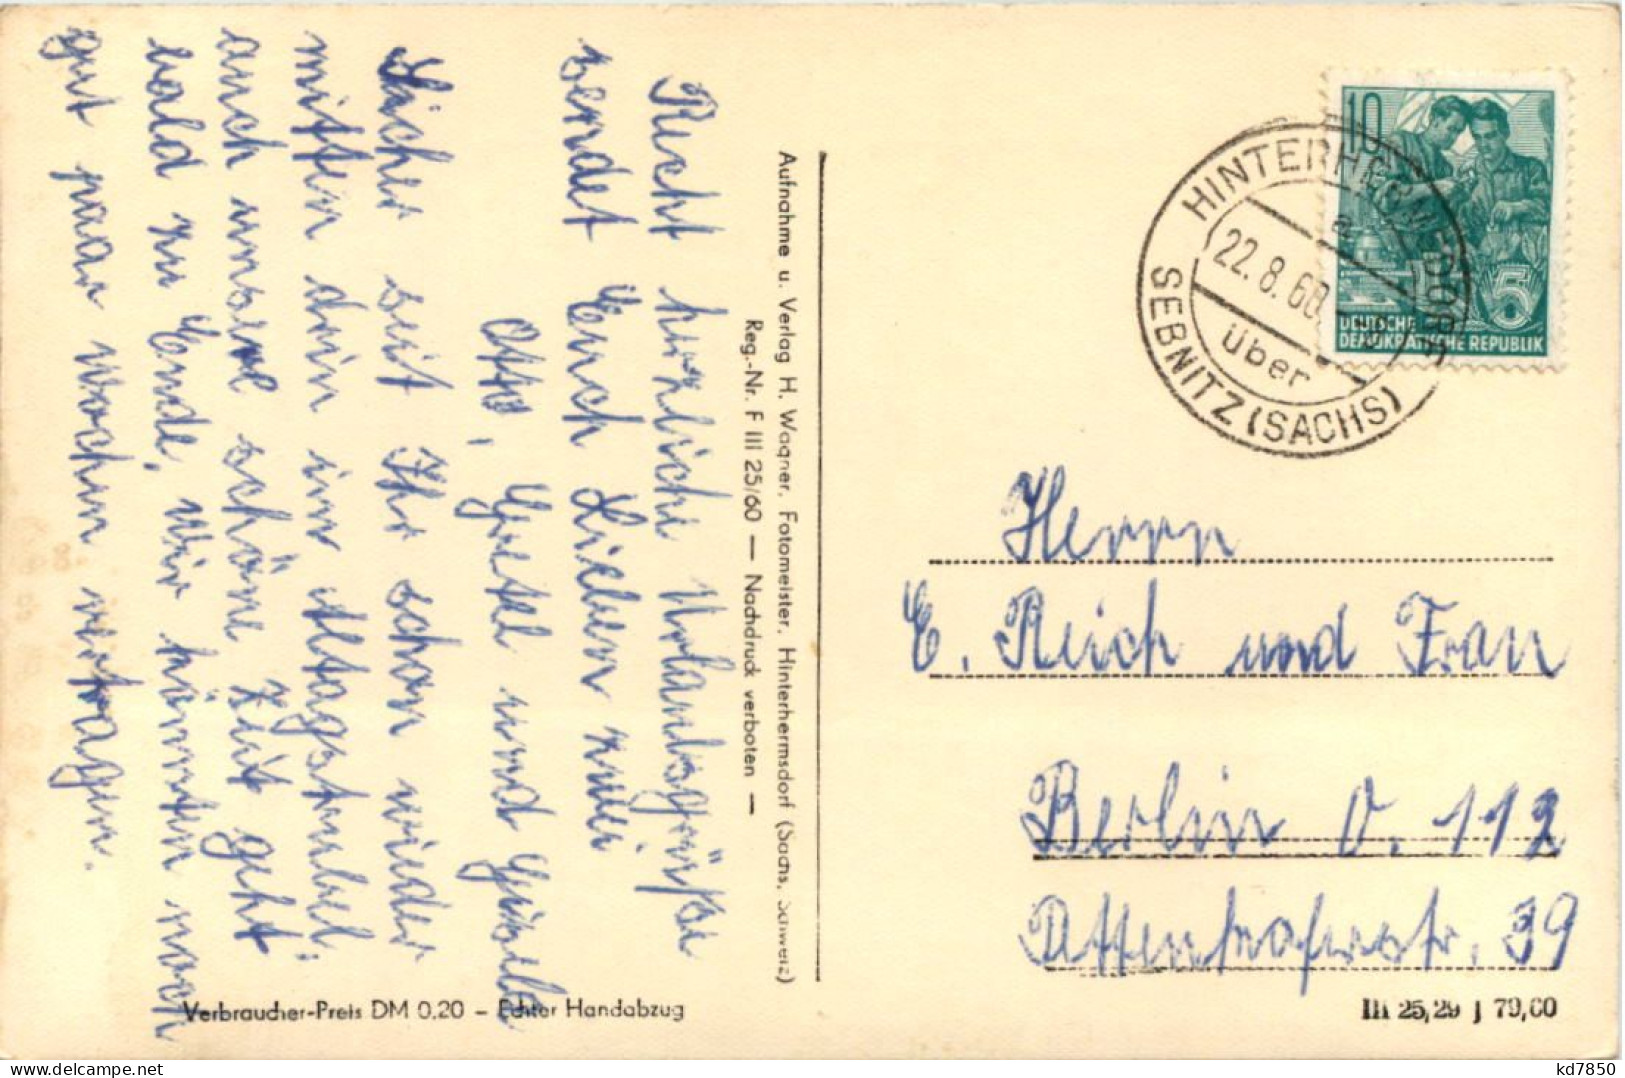 Recht herzliche Urlaubsgrüße
sendet Euch Lieben zwei
Otto, Gretel und Gisela
Sicher seit Ihr schon wieder
mitten drin im Altagstrubel.
auch unsere schöne Zeit geht
bald zu Ende, wir könnten noch
gut paar Wochen vertragen.
Aufnahme u. Verlag H. Wagner, Fotomeister, Hinterhermsdorf (Sächs. Schweiz)
Reg.-Nr. F III 25/60 — Nachdruck verboten —
Verbraucher-Preis DM 0.20 – Echter Handabzug
10
5
DEUTSCHE
DEMOKRATISCHE REPUBLIK
HINTERHERMSDORF
a
22.8.60
über
SEBNITZ (SACHS)
Herrn
E. Reich und Frau
Berlin O. 112
39
III 25,29 J 79,60
kd7850